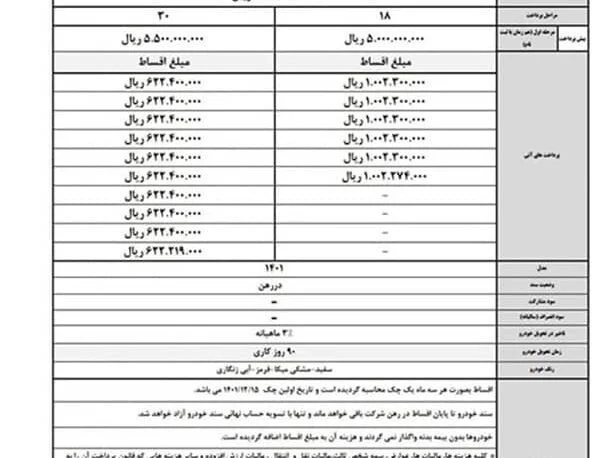 مراحل پرداخت ۱۸ ۳۰
پیش پرداخت مرحله اول (هم زمان با ثبت نام) ۵.۰۰۰.۰۰۰.۰۰۰ ریال ۵.۵۰۰.۰۰۰.۰۰۰ ریال
پرداخت های آتی مبلغ اقساط مبلغ اقساط
۱.۰۰۲.۳۰۰.۰۰۰ ریال ۶۲۲.۴۰۰.۰۰۰ ریال
۱.۰۰۲.۳۰۰.۰۰۰ ریال ۶۲۲.۴۰۰.۰۰۰ ریال
۱.۰۰۲.۳۰۰.۰۰۰ ریال ۶۲۲.۴۰۰.۰۰۰ ریال
۱.۰۰۲.۳۰۰.۰۰۰ ریال ۶۲۲.۴۰۰.۰۰۰ ریال
۱.۰۰۲.۳۰۰.۰۰۰ ریال ۶۲۲.۴۰۰.۰۰۰ ریال
۱.۰۰۲.۲۷۴.۰۰۰ ریال ۶۲۲.۴۰۰.۰۰۰ ریال
- ۶۲۲.۴۰۰.۰۰۰ ریال
- ۶۲۲.۴۰۰.۰۰۰ ریال
- ۶۲۲.۴۰۰.۰۰۰ ریال
- ۶۲۲.۲۱۹.۰۰۰ ریال
مدل ۱۴۰۱
وضعیت سند دررهن
سود مشارکت -
سود انصراف (سالیانه) -
تاخیر در تحویل خودرو ۳٪ ماهیانه
زمان تحویل خودرو ۹۰ روز کاری
رنگ خودرو سفید-مشکی میکا-قرمز-آبی زنگاری
اقساط بصورت هر سه ماه یک چک محاسبه گردیده است و تاریخ اولین چک ۱۴۰۱/۱۲/۱۵ می باشد.
سند خودرو تا پایان اقساط در رهن شرکت باقی خواهد ماند و تنها با تسویه حساب نهائی سند خودرو آزاد خواهد شد.
خودروها بدون بیمه بدنه واگذار نمی گردند و هزینه آن به مبلغ اقساط اضافه گردیده است.
* کلیه هزینه ها، مالیات ها، عوارض، بیمه شخص ثالث، مالیات نقل و انتقال، مالیات ارزش افزوده و سایر هزینه هایی که قانون پرداخت آن را به